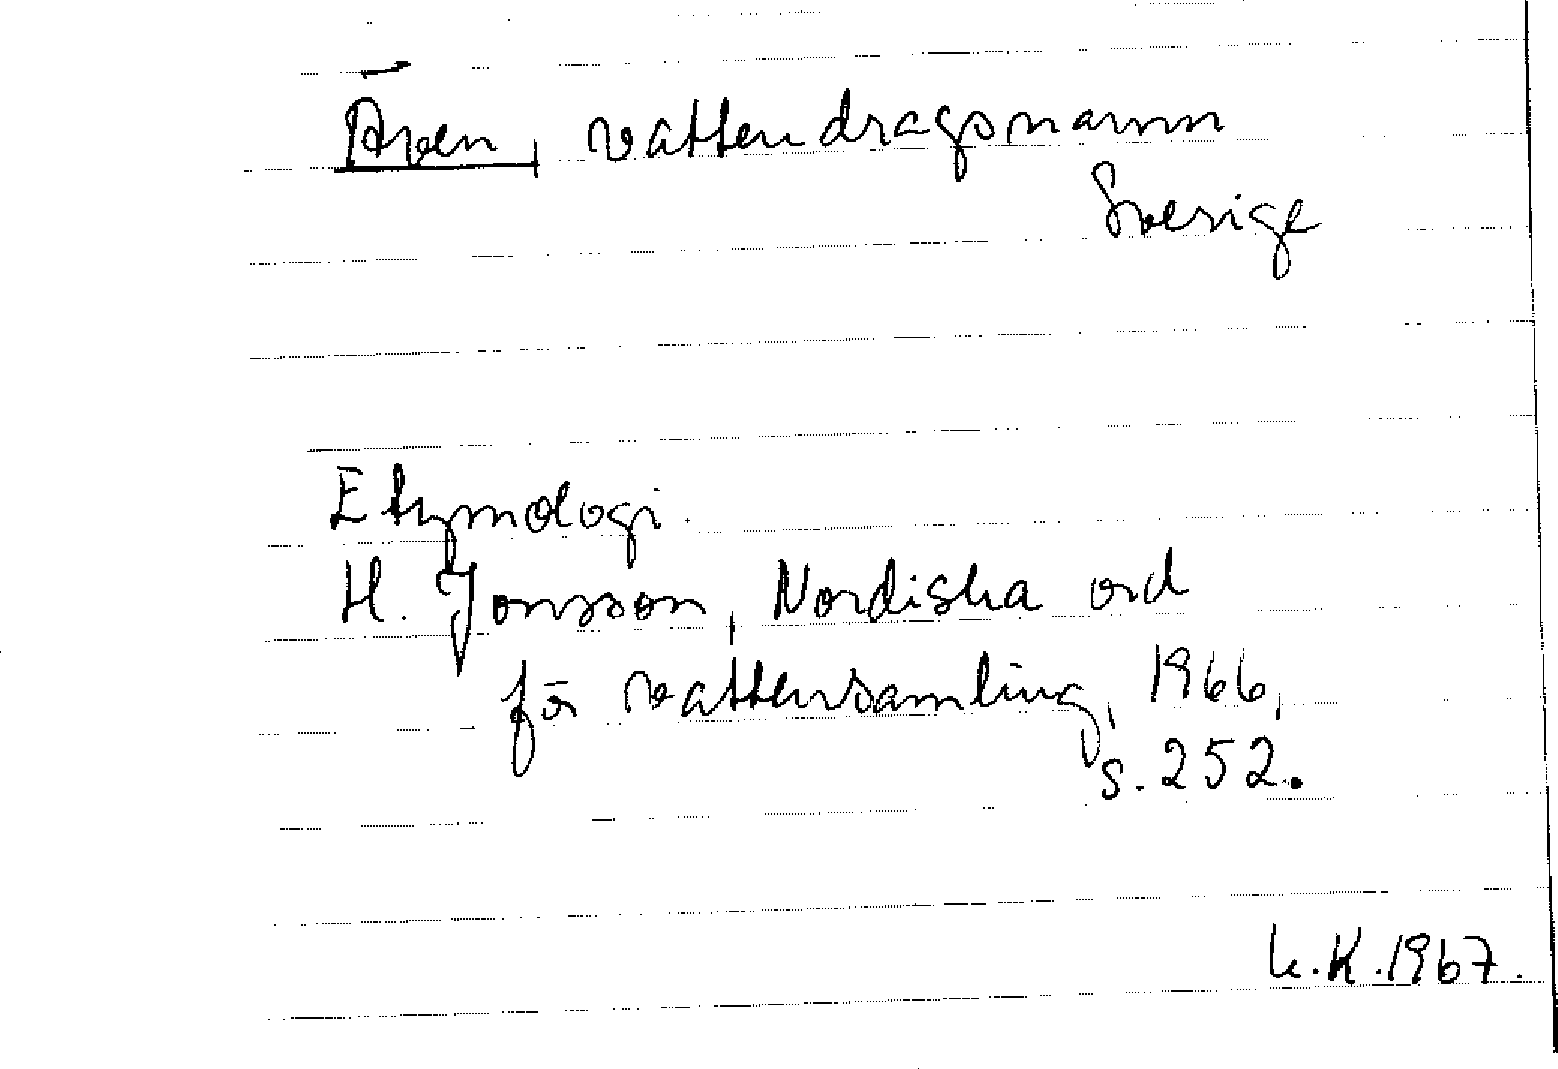 Även, vattendragsnamn
Sverige
Etymologi.
H. Jonsson, Nordiska ord
för vattensamling, 1966,
s. 252.
K. 1967.